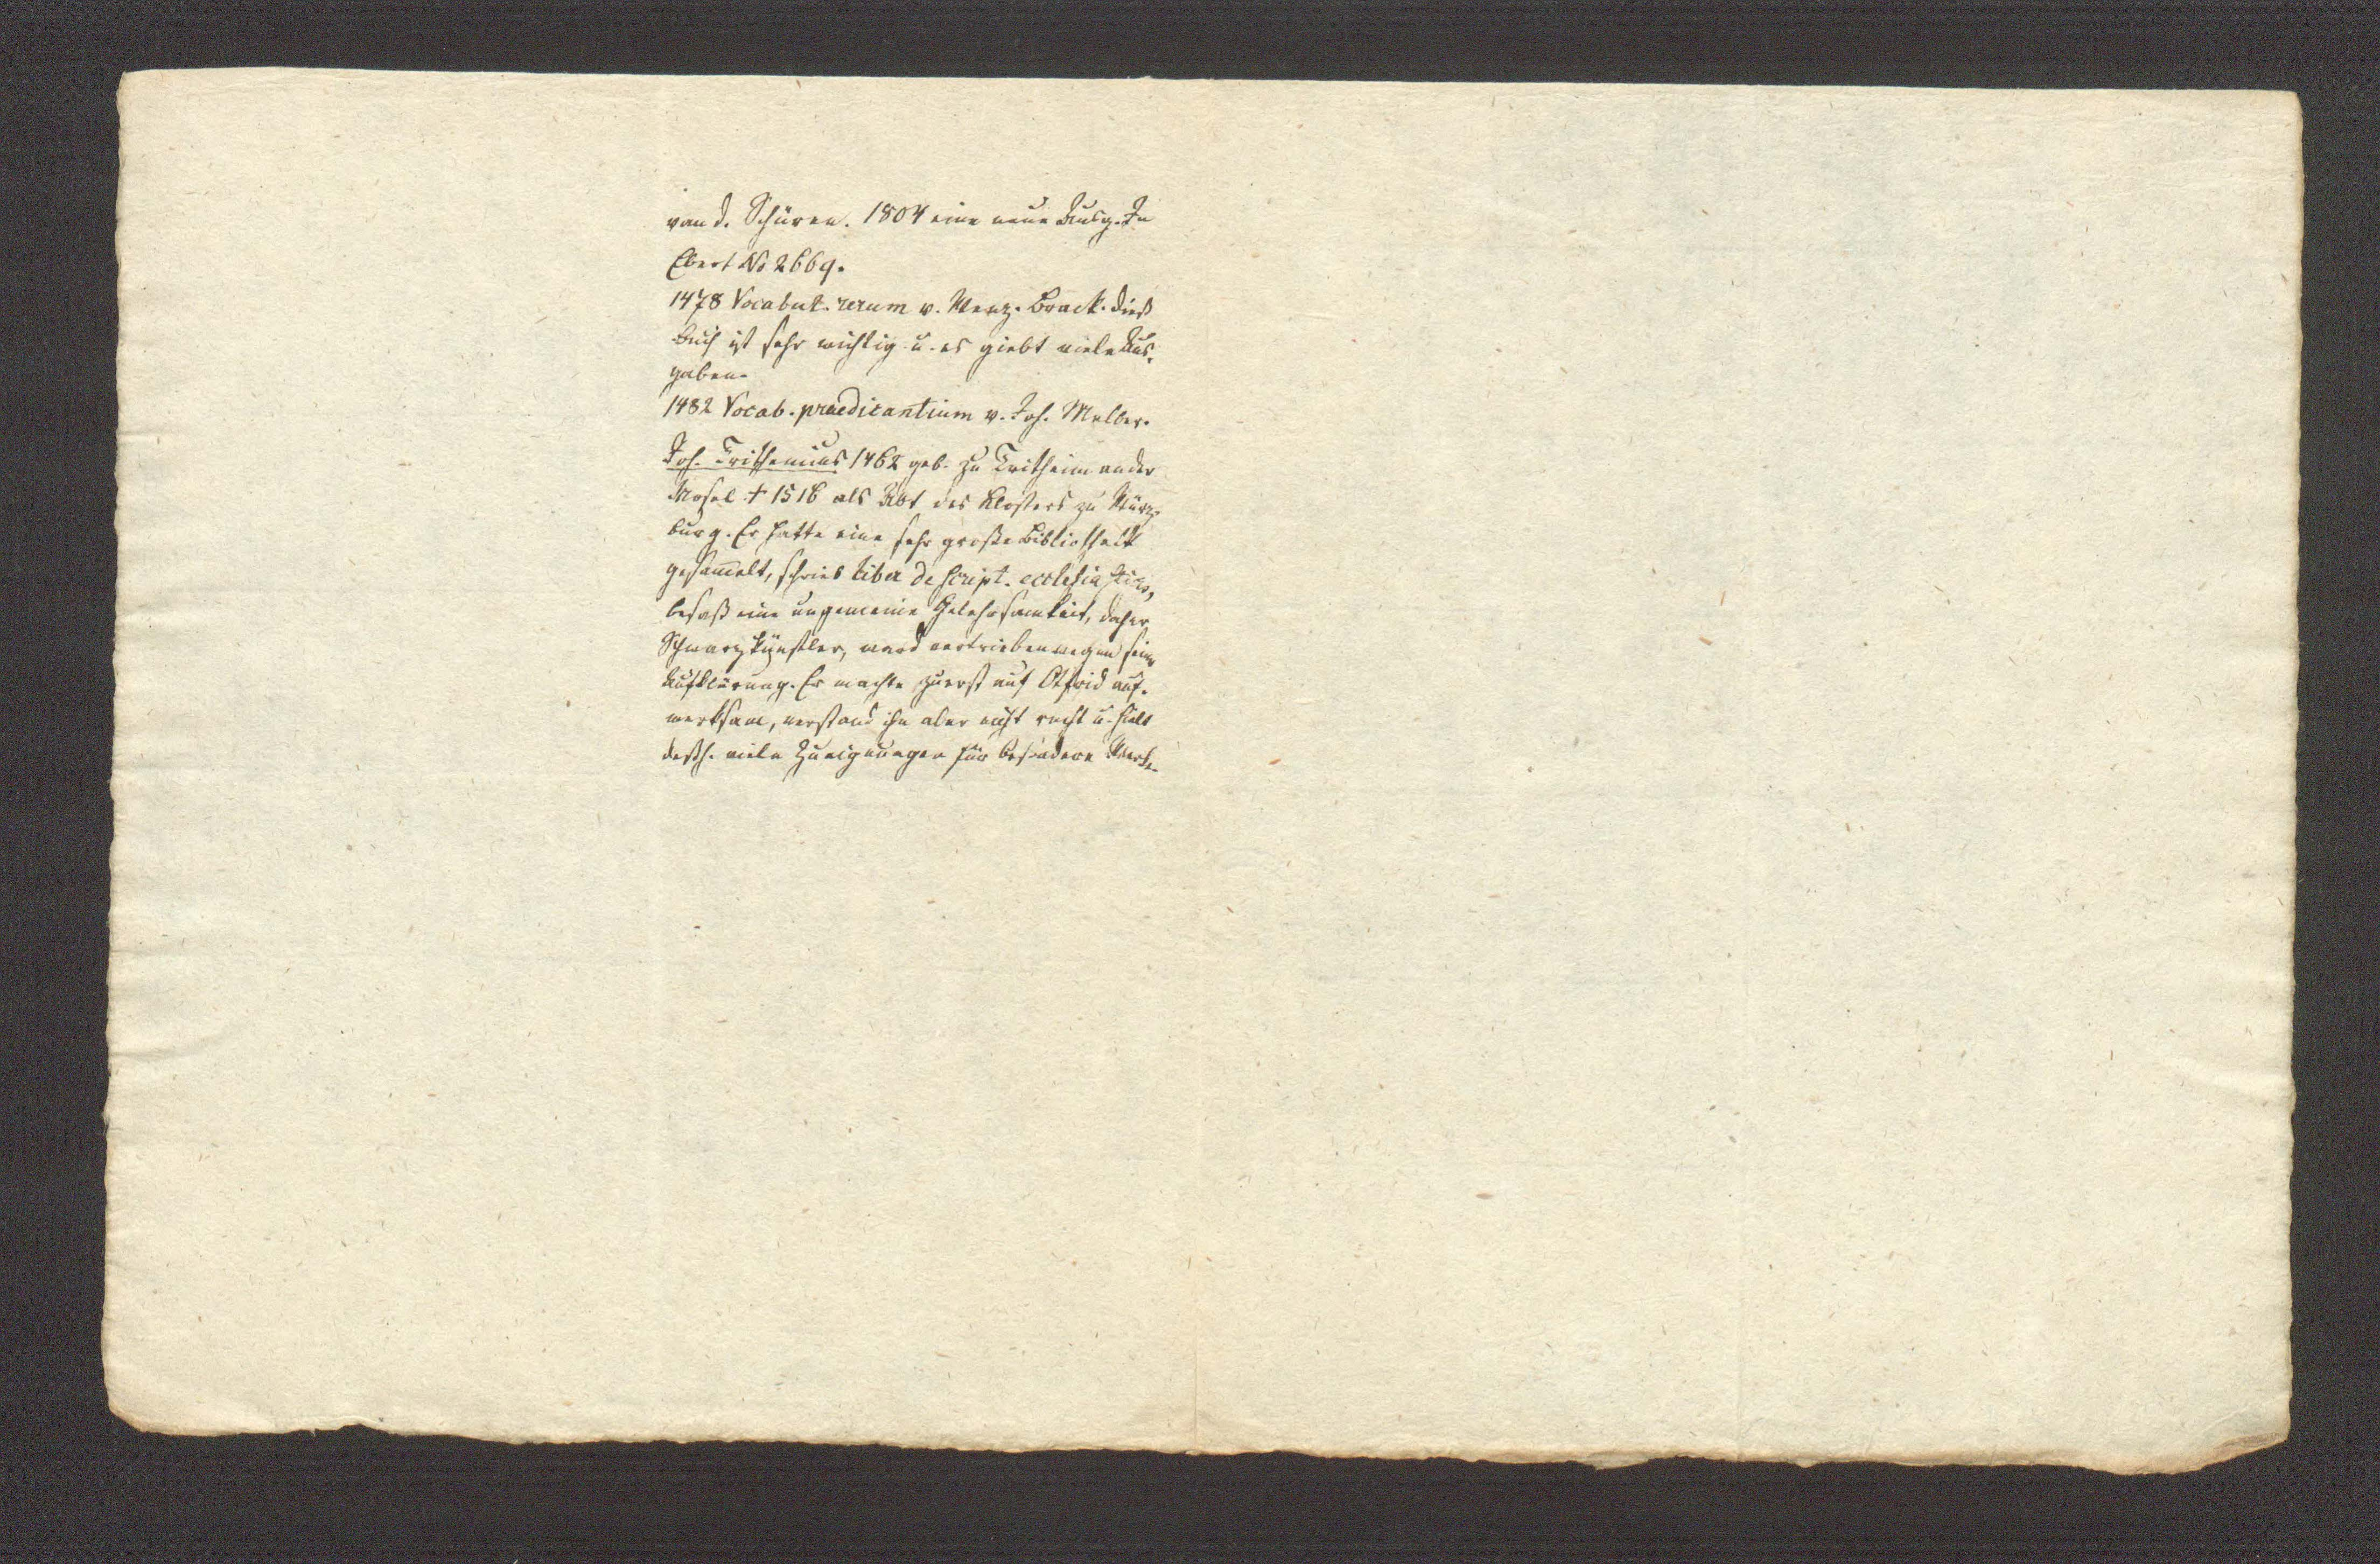 van d. Schüren. 1804 eine neue Ausg. In
Ebert No 2669.
1478 Vocabul. rerum v. Wenz. Brack. dieß
Buch ist sehr wichtig u. es giebt viele Aus-
gaben.
1482 Vocab. praedicantium v. Joh. Melber.
Joh. Trithemius 1462 geb. zu Tritheim an der
Mosel † 1516 als Abt des Klosters zu Würz-
burg. Er hatte eine sehr große Bibliothek
gesam̄elt, schrieb liber de script. ecclesiasticis,
besaß eine ungemeine Gelehrsamkeit, daher
Schwarzkünstler, ward vertrieben wegen seiner
Aufklärung. Er machte zuerst auf Otfrid auf-
merksam, verstand ihn aber nicht recht u. hielt
dessh. viele Zueignungen für besondere Werke.